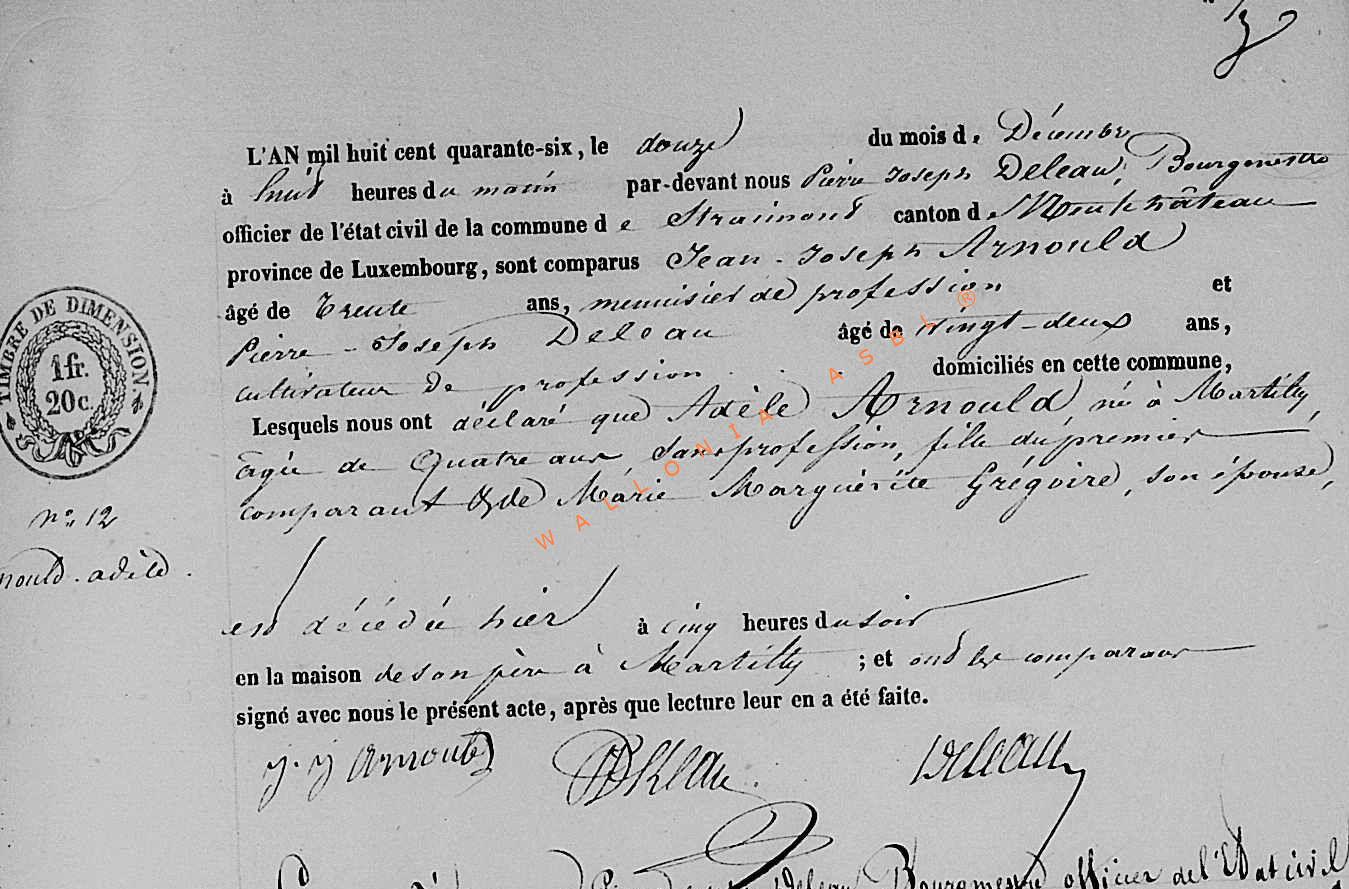 3
L'AN mil huit cent quarante-six, le douze du mois de Décembre
à huit heures du matin par-devant nous Pierre Joseph Deleau, Bourgmestre
officier de l'état civil de la commune de Straimont canton de Neufchâteau
province de Luxembourg, sont comparus Jean-Joseph Arnould
âgé de Trente ans, menuisier de profession et
Pierre-Joseph Deleau âgé de vingt-deux ans,
cultivateur de profession domiciliés en cette commune,
Lesquels nous ont déclaré que Adèle Arnould, né à Martilly,
âgée de quatre ans, sans profession, fille du premier
comparant & de Marie Marguérite Grégoire, son épouse,
est décédée hier à cinq heures du soir
en la maison de son père à Martilly ; et ont les comparans
signé avec nous le présent acte, après que lecture leur en a été faite.
j. j arnould PJDeleau Deleau
Deleau Bourgmestre officier de l'Etat civil
TIMBRE DE DIMENSION.
1 fr.
20 c.
n° 12
nould. adèle.
WALLONIA ASBL ®